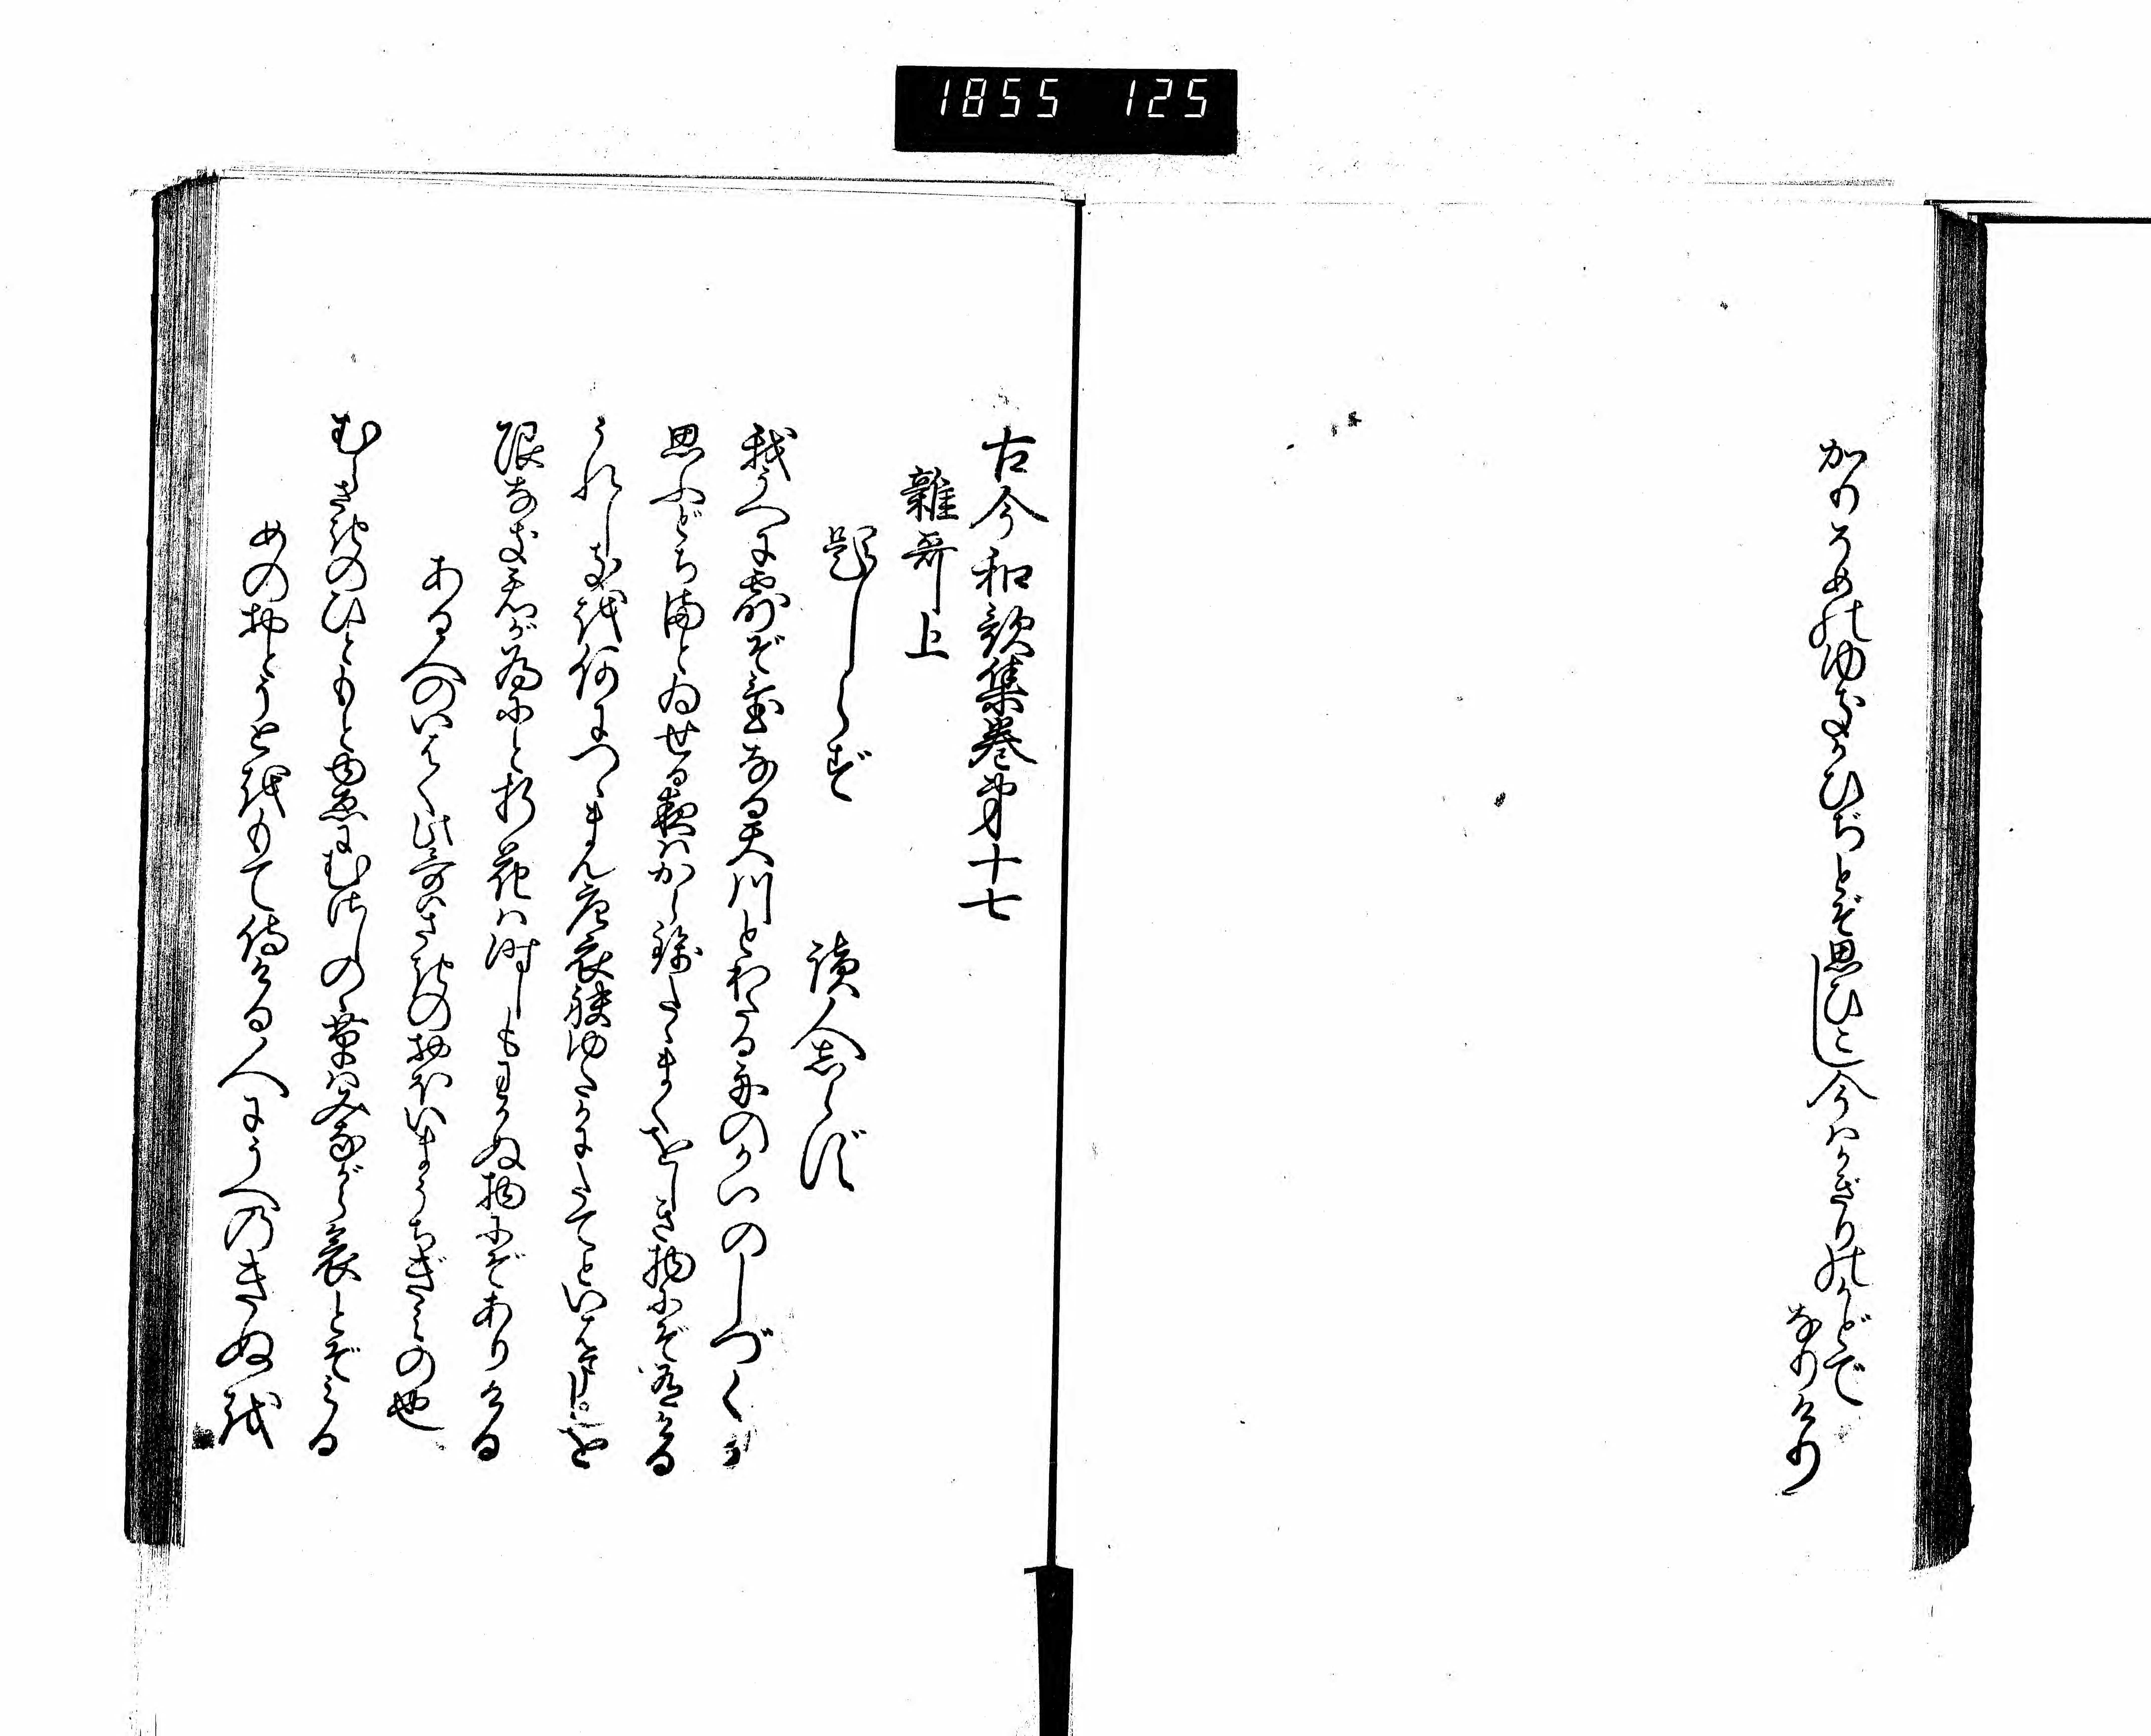 1855 125
かりそめのゆきかひぢとぞ思ひこし今はかぎりのかどで
なりけり
古今和歌集巻第十七
雑哥上
題しらず
読人しらず
我うへに露ぞ置なる天川とわたる舟のかいのしづくか
思ふどち满とゐせる夜はから錦たゝまくをしき物にぞ有ける
うれしきを何につゝまん唐衣袂ゆたかにたてといはましを
限なき君が為にと折花は時しもわかぬ物にぞありける
ある人のいはく此哥はさきのおほいまうちぎみの也
むらさきのひともとゆゑにむさしのゝ草はみながら哀とぞみる
めのおとうとをもて侍ける人にうへのきぬを